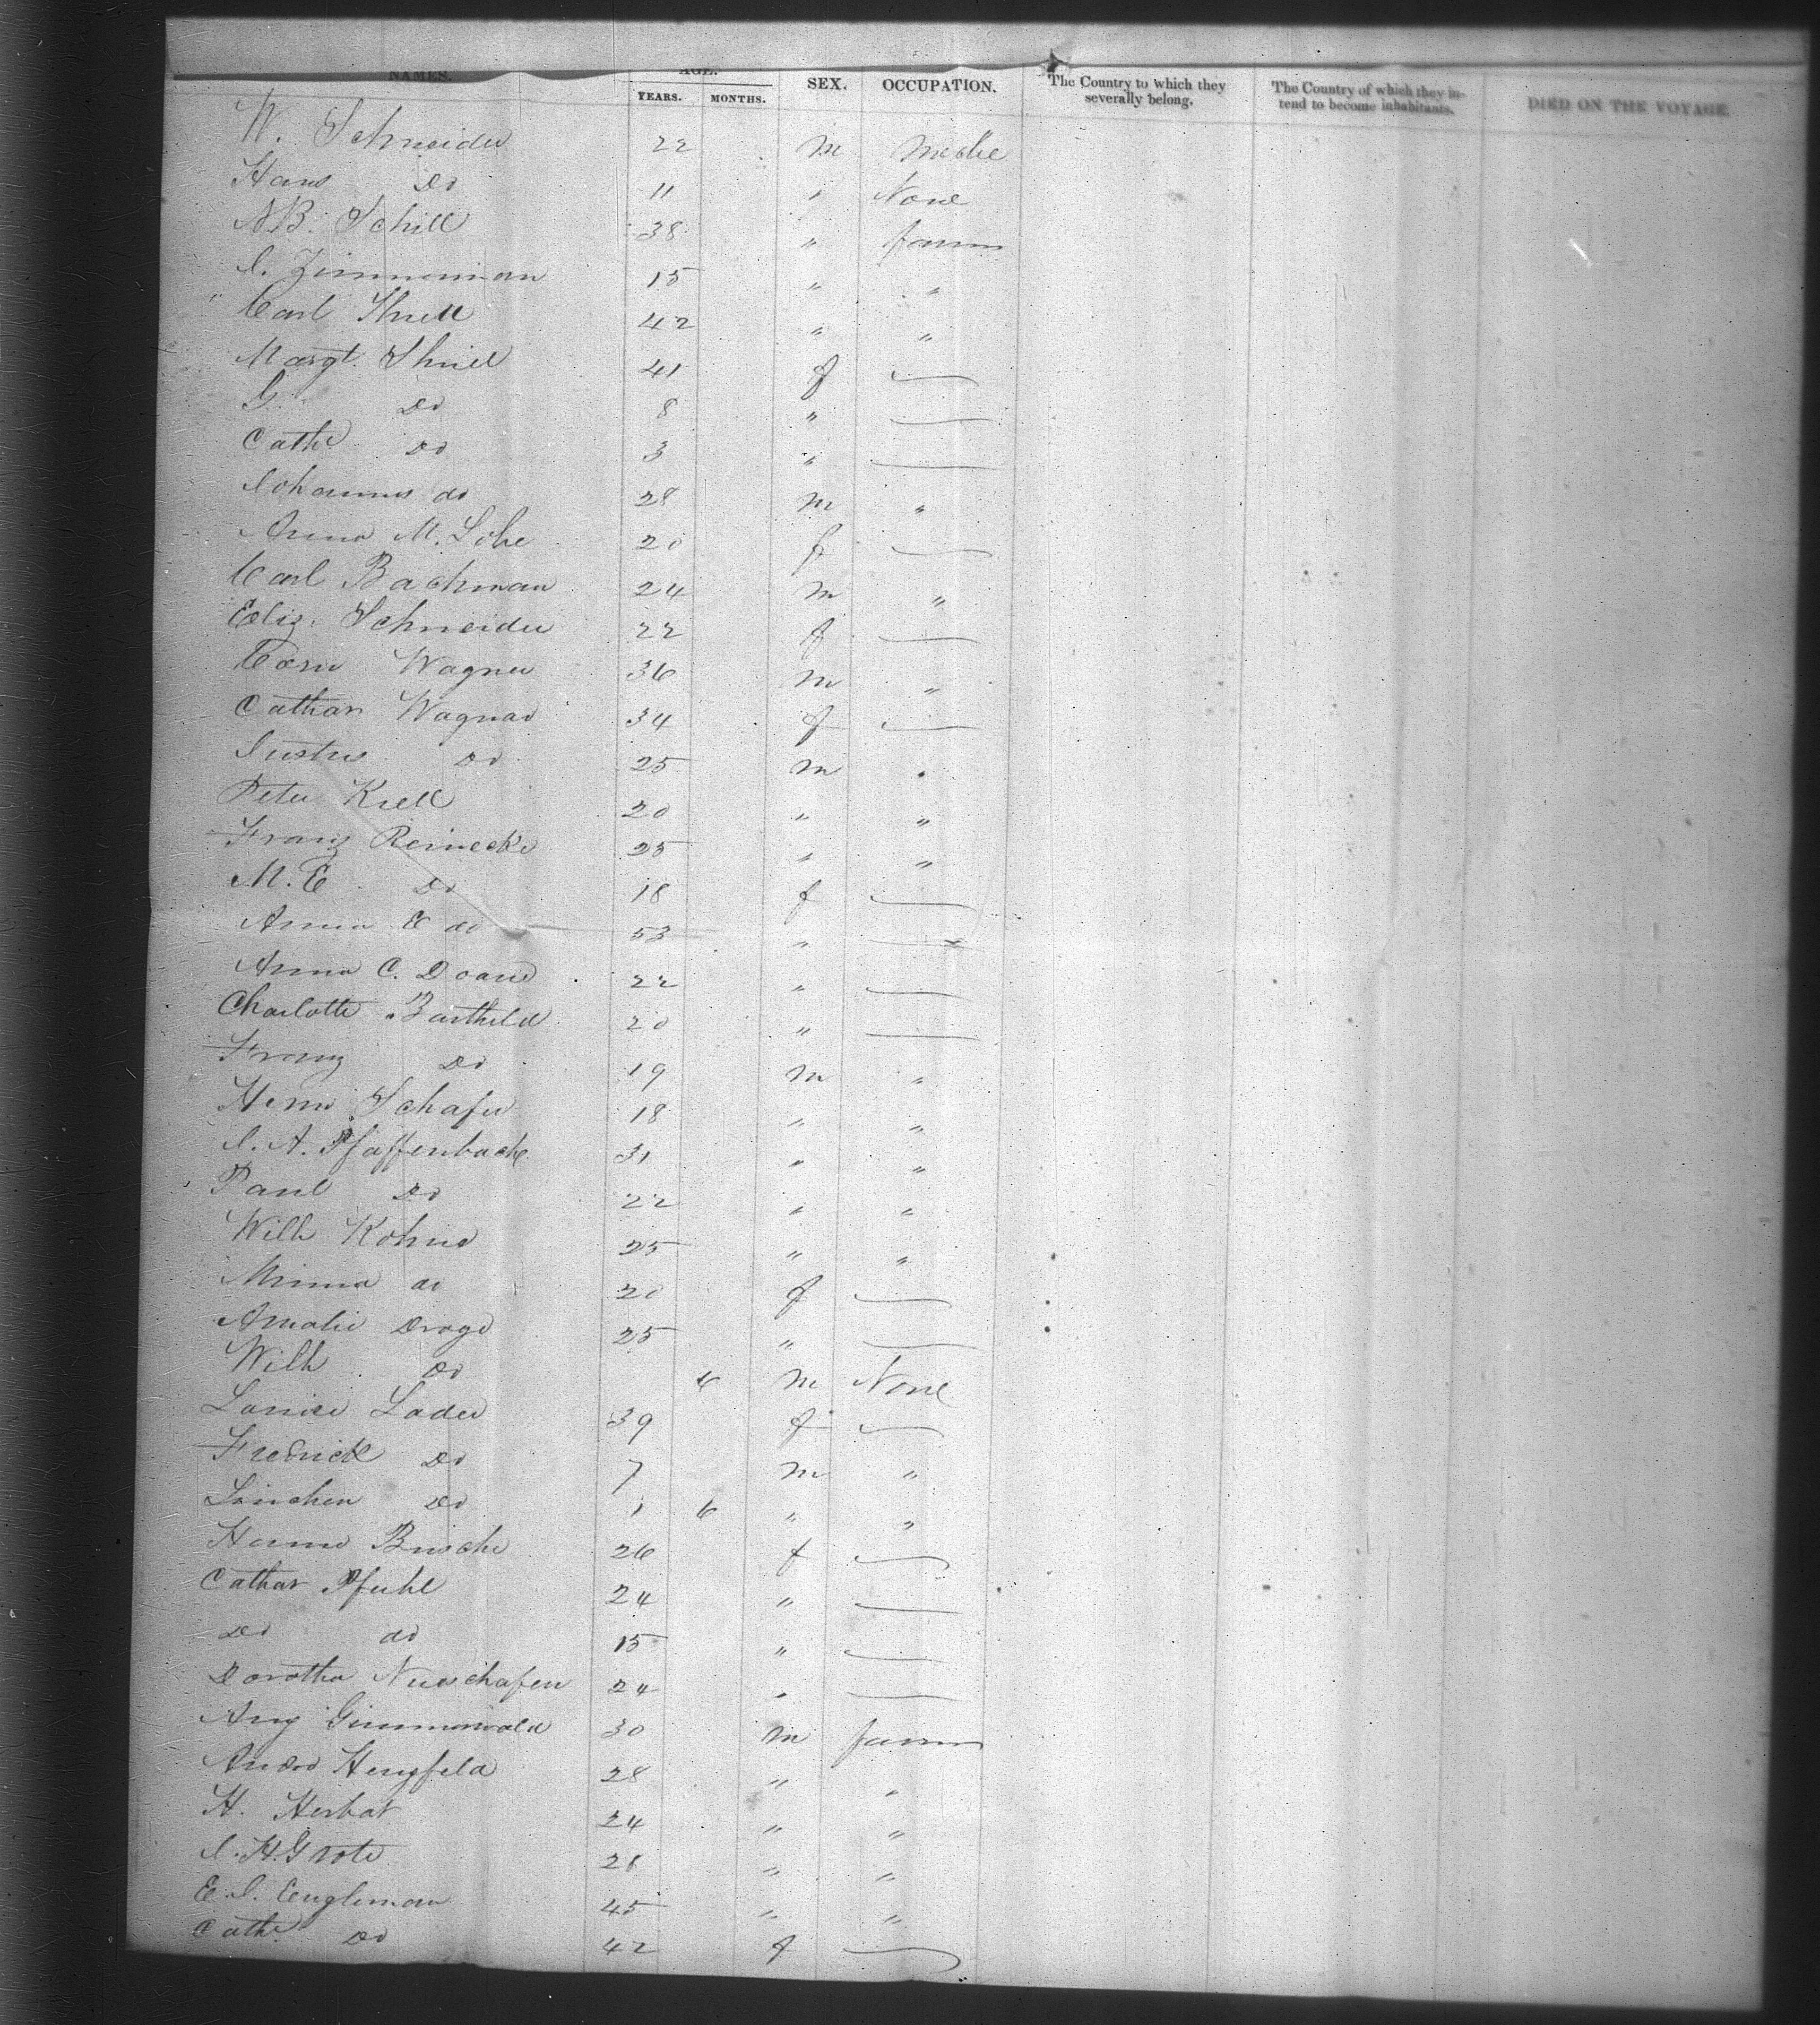 NAMES. AGE. SEX. OCCUPATION. The Country to which they severally belong. The Country of which they intend to become inhabitants. DIED ON THE VOYAGE.
YEARS. MONTHS.
W. Schneider 22 m
Hans Do 11 " None
AB. Schill 38 " farm
J. Zimmerman 15 " "
Carl 42 " "
Margt. 41 f —
G. Do 8 " —
Cathe Do 3 " —
Johannes do 28 m "
Anna M. 20 f —
Carl Bachman 24 m "
Eliz. Schneider 22 f —
Wagner 36 m "
Cathar Wagner 34 f —
Justus Do 25 m "
Peter Krell 20 " "
Franz Reinecke 25 " "
M. E. Do 18 f —
Anna E do 53 " —
Anna C. 22 " —
Charlotte Bartheld 20 " —
Franz Do 19 m "
Schafer 18 " "
J. A. Pfaffenbach 31 " "
Paul Do 22 " "
Wilh Kohne 25 " "
Minna do 20 f —
Amalie Droge 25 " —
Wilh Do 6 m None
Louise Lader 39 f —
Fredrick Do 7 m "
Linchen Do 1 6 " "
26 f —
Cathar Pfuhl 24 " —
Do do 15 " —
Dorothea 24 " —
Aug 30 m farm
28 " "
H. Herbat 24 " "
J. H. Grote 28 " "
E. J. Engleman 45 " "
Cathe Do 42 f —